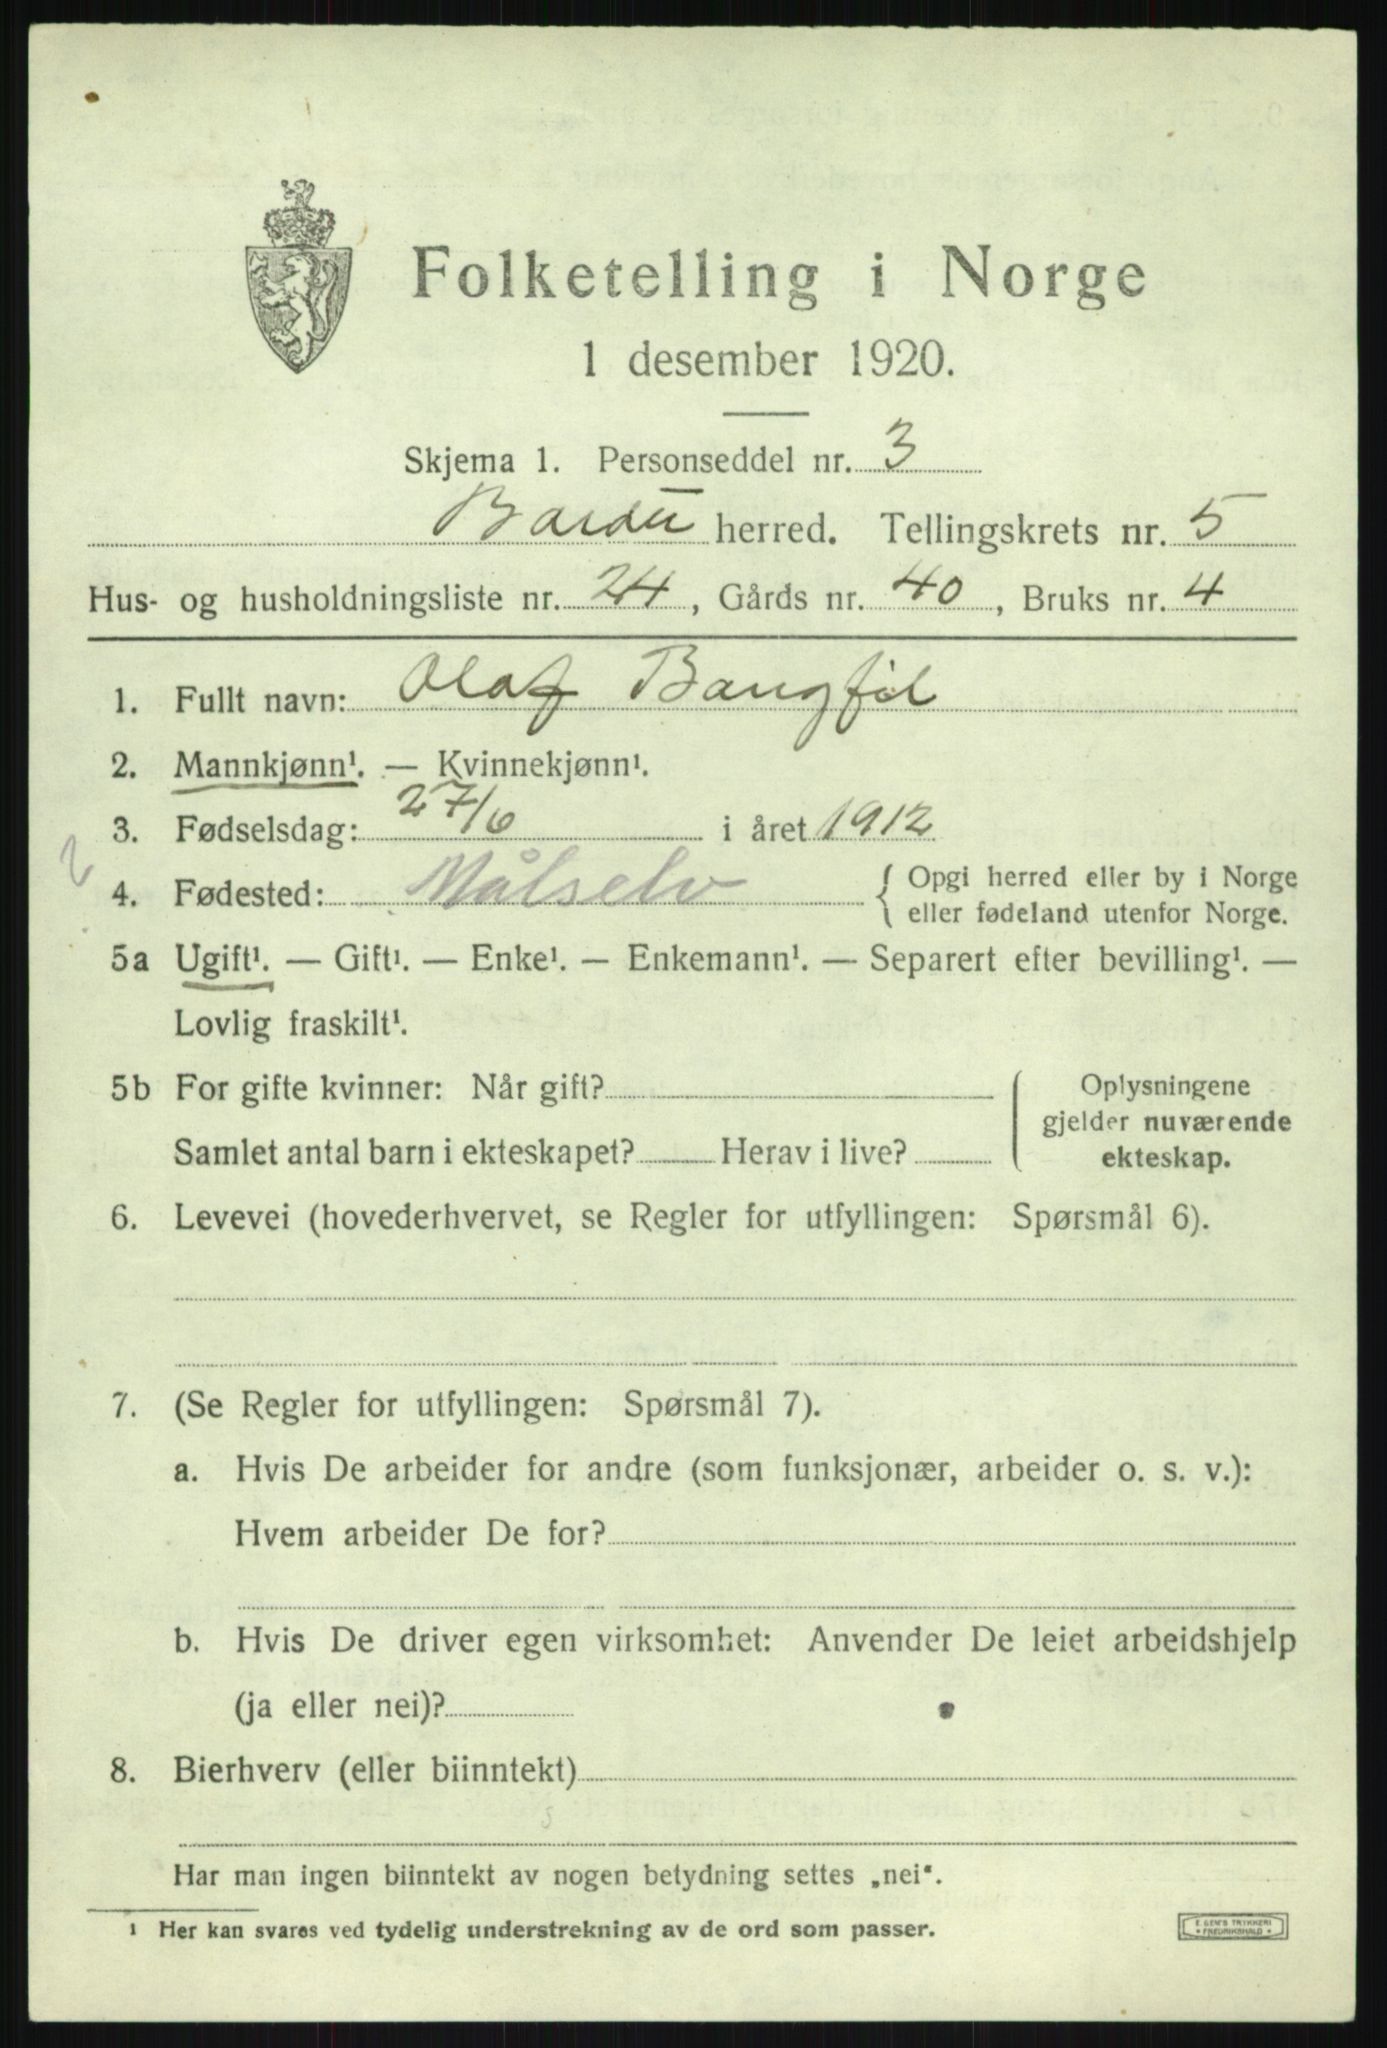 Folketelling i Norge
1 desember 1920.
Skjema 1. Personseddel nr. 3
Bardu herred. Tellingskrets nr. 5
Hus- og husholdningsliste nr. 24, Gårds nr. 40, Bruks nr. 4
1. Fullt navn: Olaf Bangfil
2. Mannkjønn¹. — Kvinnekjønn¹.
3. Fødselsdag: 27/6 i året 1912
2
4. Fødested: Målselv { Opgi herred eller by i Norge
eller fødeland utenfor Norge.
5a Ugift¹. — Gift¹. — Enke¹. — Enkemann¹. — Separert efter bevilling¹. —
Lovlig fraskilt¹.
5b For gifte kvinner: Når gift? ( Oplysningene
gjelder nuværende
Samlet antal barn i ekteskapet? Herav i live? ekteskap.
6. Levevei (hovederhvervet, se Regler for utfyllingen: Spørsmål 6).
7. (Se Regler for utfyllingen: Spørsmål 7).
a. Hvis De arbeider for andre (som funksjonær, arbeider o. s. v.):
Hvem arbeider De for?
b. Hvis De driver egen virksomhet: Anvender De leiet arbeidshjelp
(ja eller nei)?
8. Bierhverv (eller biinntekt)
Har man ingen biinntekt av nogen betydning settes „nei“.
¹ Her kan svares ved tydelig understrekning av de ord som passer.
E. GEM'S TRYKKERI
• FREDRIKSHALD •